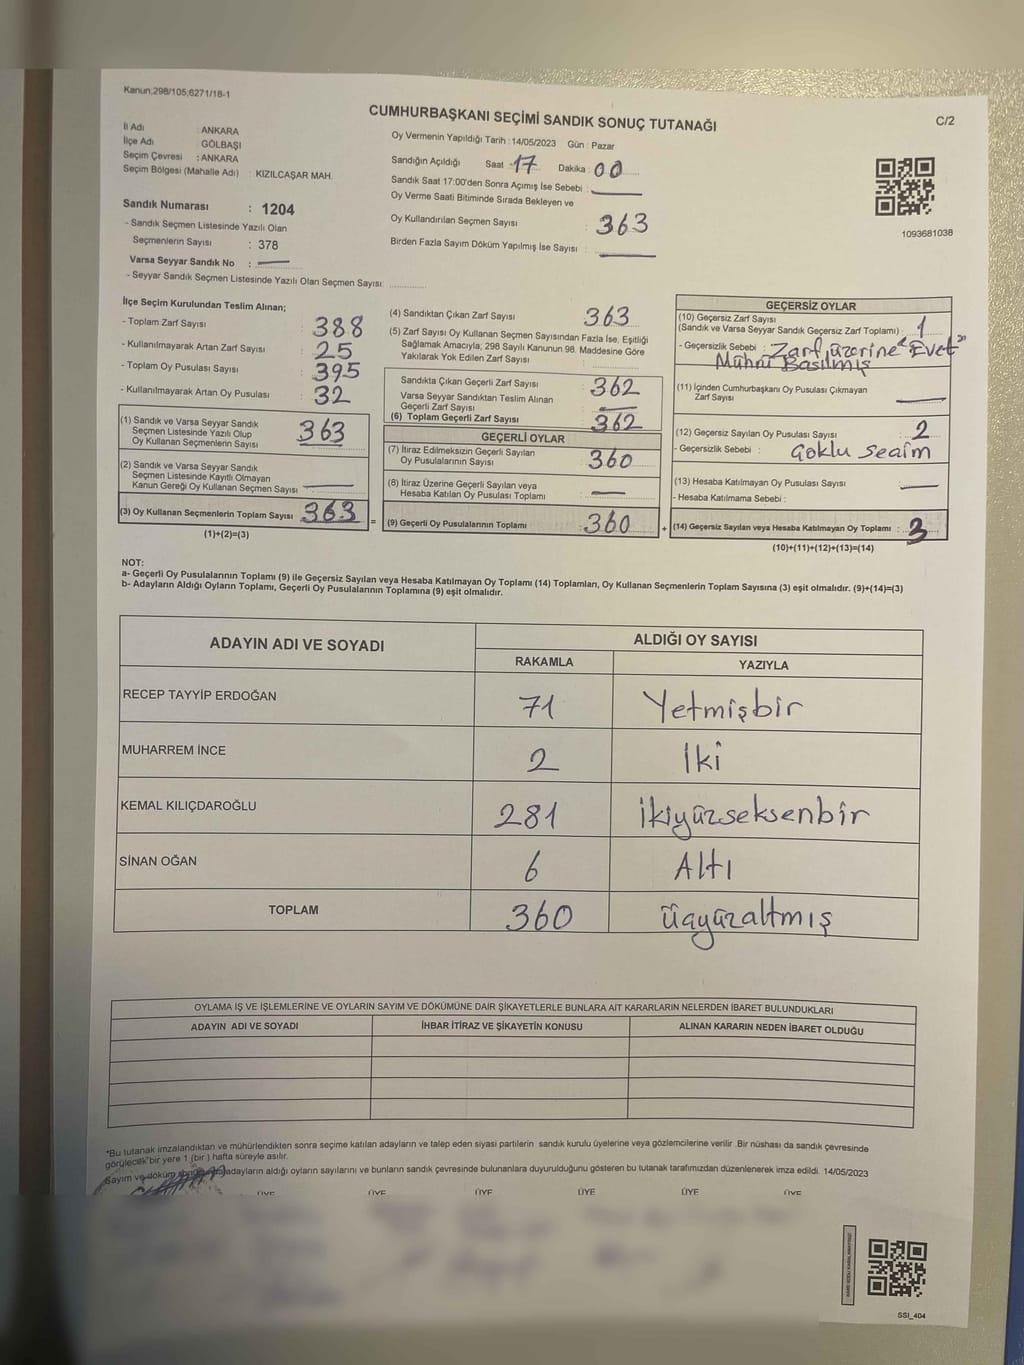 Kanun;298/105;6271/18-1
C/2
CUMHURBAŞKANI SEÇİMİ SANDIK SONUÇ TUTANAĞI
İl Adı : ANKARA
İlçe Adı : GÖLBAŞI
Seçim Çevresi : ANKARA
Seçim Bölgesi (Mahalle Adı) : KIZILCAŞAR MAH.
Sandık Numarası : 1204
- Sandık Seçmen Listesinde Yazılı Olan
Seçmenlerin Sayısı : 378
Varsa Seyyar Sandık No :
- Seyyar Sandık Seçmen Listesinde Yazılı Olan Seçmen Sayısı:
Oy Vermenin Yapıldığı Tarih : 14/05/2023 Gün : Pazar
Sandığın Açıldığı Saat : 17 Dakika : 00
Sandık Saat 17:00'den Sonra Açımış İse Sebebi :
Oy Verme Saati Bitiminde Sırada Bekleyen ve
Oy Kullandırılan Seçmen Sayısı : 363
Birden Fazla Sayım Döküm Yapılmış İse Sayısı :
1093681038
İlçe Seçim Kurulundan Teslim Alınan;
- Toplam Zarf Sayısı : 388
- Kullanılmayarak Artan Zarf Sayısı : 25
- Toplam Oy Pusulası Sayısı : 395
- Kullanılmayarak Artan Oy Pusulası : 32
(1) Sandık ve Varsa Seyyar Sandık
Seçmen Listesinde Yazılı Olup
Oy Kullanan Seçmenlerin Sayısı 363
(2) Sandık ve Varsa Seyyar Sandık
Seçmen Listesinde Kayıtlı Olmayan
Kanun Gereği Oy Kullanan Seçmen Sayısı
(3) Oy Kullanan Seçmenlerin Toplam Sayısı 363 =
(1)+(2)=(3)
(4) Sandıktan Çıkan Zarf Sayısı 363
(5) Zarf Sayısı Oy Kullanan Seçmen Sayısından Fazla İse, Eşitliği
Sağlamak Amacıyla, 298 Sayılı Kanunun 98. Maddesine Göre
Yakılarak Yok Edilen Zarf Sayısı
Sandıkta Çıkan Geçerli Zarf Sayısı : 362
Varsa Seyyar Sandıktan Teslim Alınan
Geçerli Zarf Sayısı
(6) Toplam Geçerli Zarf Sayısı : 362
GEÇERLİ OYLAR
(7) İtiraz Edilmeksizin Geçerli Sayılan
Oy Pusulalarının Sayısı : 360
(8) İtiraz Üzerine Geçerli Sayılan veya
Hesaba Katılan Oy Pusulası Toplamı :
(9) Geçerli Oy Pusulalarının Toplamı : 360 +
GEÇERSİZ OYLAR
(10) Geçersiz Zarf Sayısı
(Sandık ve Varsa Seyyar Sandık Geçersiz Zarf Toplamı) : 1
- Geçersizlik Sebebi : Zarf üzerine "Evet"
Mührü Basılmış
(11) İçinden Cumhurbaşkanı Oy Pusulası Çıkmayan
Zarf Sayısı
(12) Geçersiz Sayılan Oy Pusulası Sayısı : 2
- Geçersizlik Sebebi : Çoklu seçim
(13) Hesaba Katılmayan Oy Pusulası Sayısı :
- Hesaba Katılmama Sebebi :
(14) Geçersiz Sayılan veya Hesaba Katılmayan Oy Toplamı : 3
(10)+(11)+(12)+(13)=(14)
NOT:
a- Geçerli Oy Pusulalarının Toplamı (9) ile Geçersiz Sayılan veya Hesaba Katılmayan Oy Toplamı (14) Toplamları, Oy Kullanan Seçmenlerin Toplam Sayısına (3) eşit olmalıdır. (9)+(14)=(3)
b- Adayların Aldığı Oyların Toplamı, Geçerli Oy Pusulalarının Toplamına (9) eşit olmalıdır.
ADAYIN ADI VE SOYADI
ALDIĞI OY SAYISI
RAKAMLA YAZIYLA
RECEP TAYYİP ERDOĞAN 71 Yetmişbir
MUHARREM İNCE 2 İki
KEMAL KILIÇDAROĞLU 281 ikiyüzseksenbir
SİNAN OĞAN 6 Altı
TOPLAM 360 üçyüzaltmış
OYLAMA İŞ VE İŞLEMLERİNE VE OYLARIN SAYIM VE DÖKÜMÜNE DAİR ŞİKAYETLERLE BUNLARA AİT KARARLARIN NELERDEN İBARET BULUNDUKLARI
ADAYIN ADI VE SOYADI İHBAR İTİRAZ VE ŞİKAYETİN KONUSU ALINAN KARARIN NEDEN İBARET OLDUĞU
*Bu tutanak imzalandıktan ve mühürlendikten sonra seçime katılan adayların ve talep eden siyasi partilerin sandık kurulu üyelerine veya gözlemcilerine verilir .Bir nüshası da sandık çevresinde
görülecek bir yere 1 (bir) hafta süreyle asılır.
Sayım ve döküm adayların aldığı oyların sayılarını ve bunların sandık çevresinde bulunanlara duyurulduğunu gösteren bu tutanak tarafımızdan düzenlenerek imza edildi. 14/05/2023
ÜYE ÜYE ÜYE ÜYE ÜYE ÜYE
SSI_404